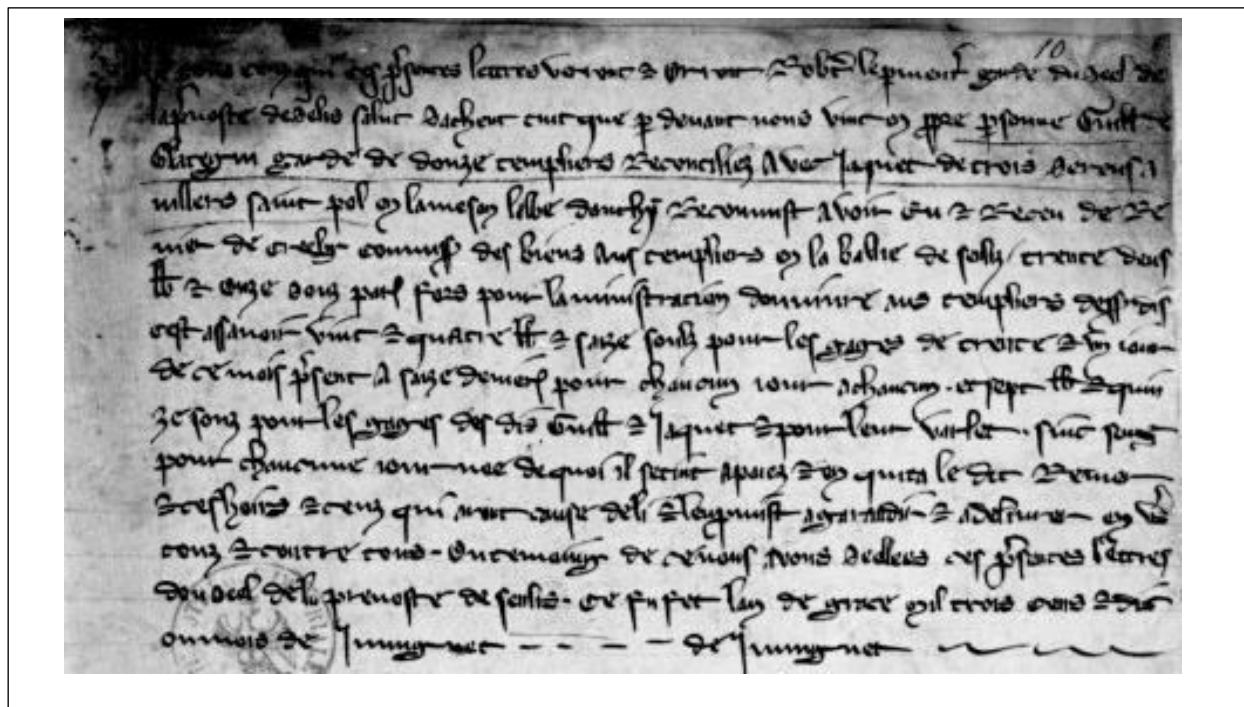 10
A tous ceus qui ces presentes lettres verront & orront Robert le parmentier garde du seel de
la prevoste de Senlis salut Sachent tuit que par devant nous vint en propre personne Guillaume de
garde de douze templiers Reconciliez avec Jaquet de
villers saint pol en la meson Recounust avoir eu & Receu de Re
nier de Creeil commis des biens aus templiers en la ballie de senliz trente deus
lb & onze souz par fors pour laministracion aus templiers dessusdis
cest asavoir vint & quatre lb & saze souz pour les gages de trente & un iour
de ce mois present A saze deniers pour chaucun iour a chaucun et sept lb & quin
ze souz pour les gages des dis Guill & Jaquet & pour leur varlet sinc souz
pour chaucune iournee de quoi il se tint apaiez & en quita le dit Renier
& ces hoirs & ceus qui avront cause de li & leur promist a garandir & a delivrer en vers
touz & contre tous En temoing de ce nous avons seellees ces presentes lettres
dou seel de la prevoste de senlis Ce fu fet lan de grace mil trois cens & dis
ou mois de Juingnet de Juingnet